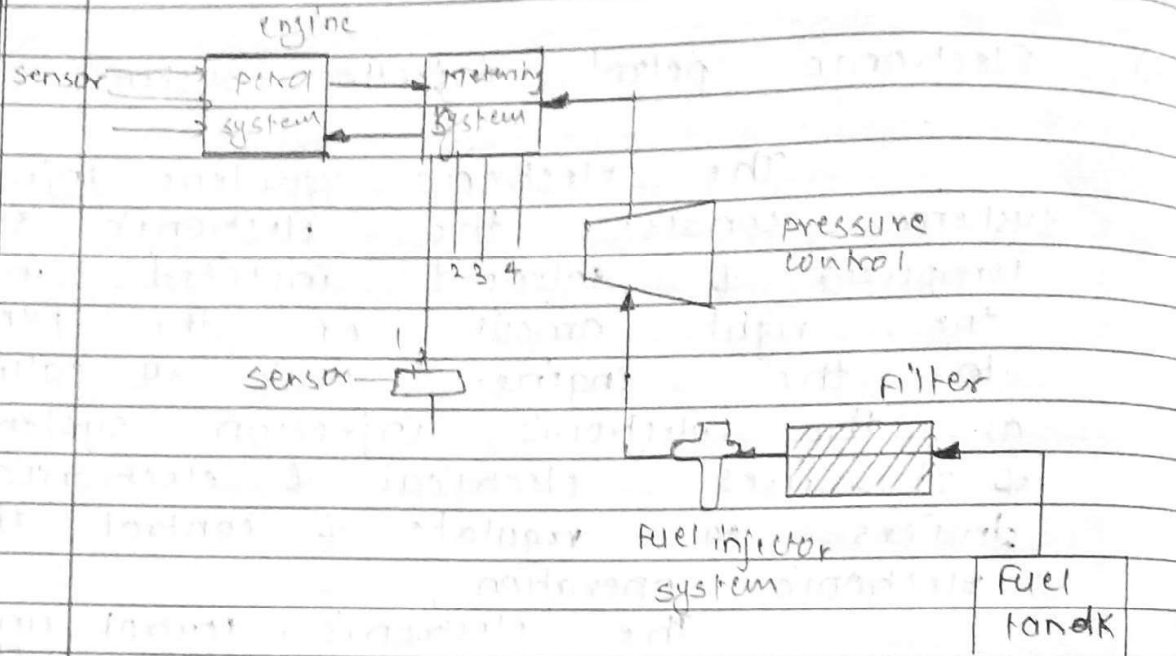 engine
sensor
petrol
system
metering
system
pressure
control
2 3 4
1
sensor
filter
Fuel injector
system
Fuel
tandk